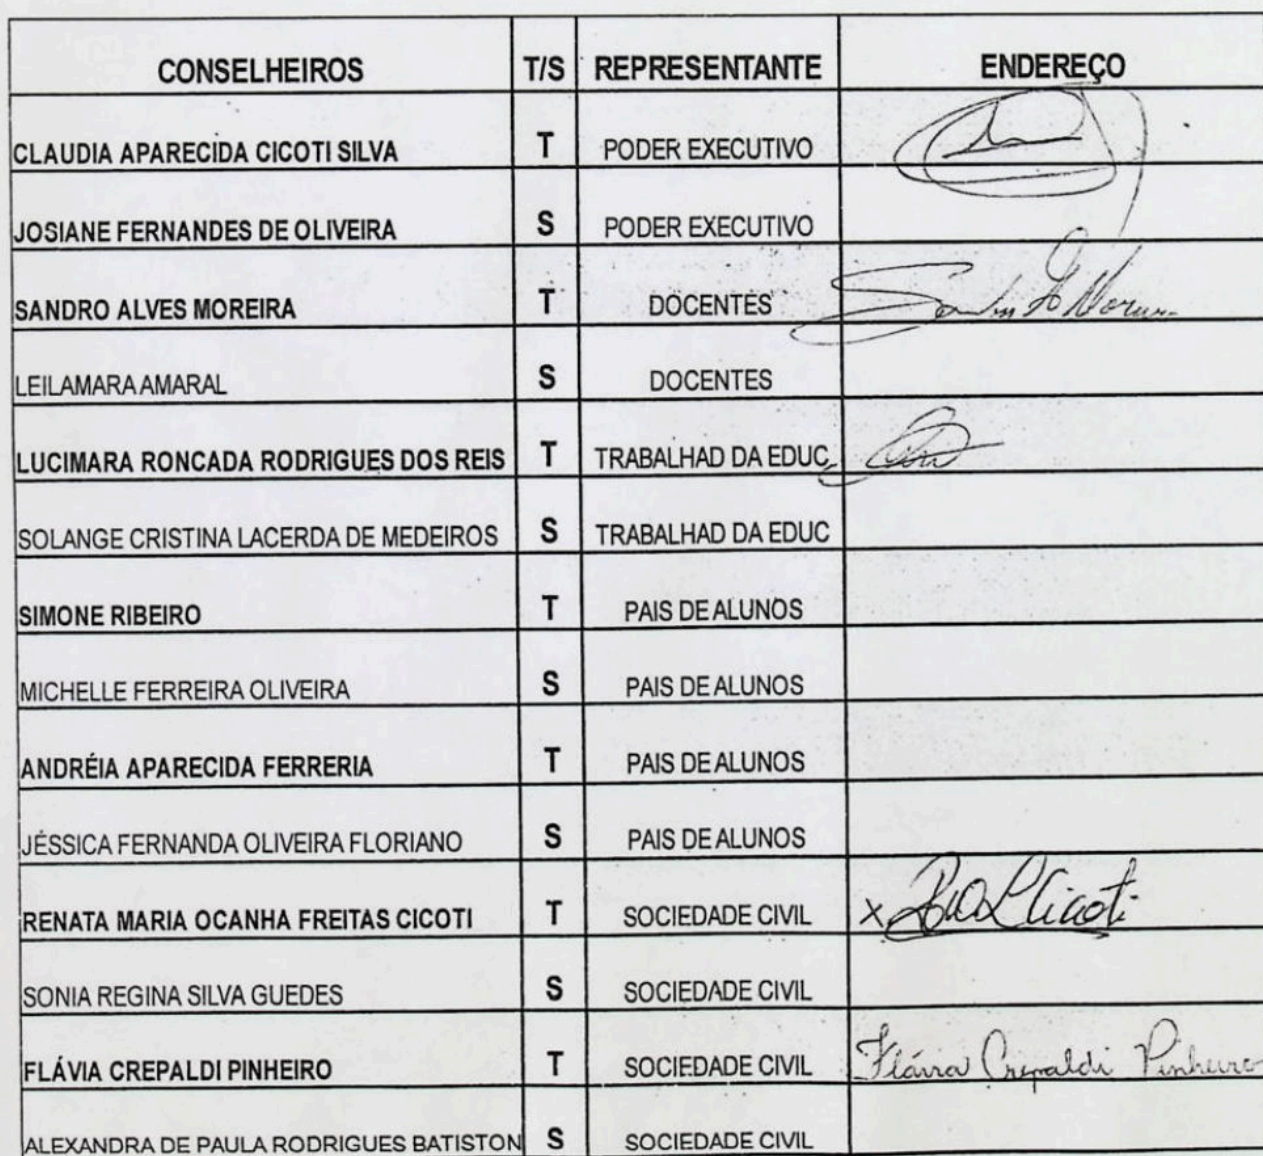 CONSELHEIROS T/S REPRESENTANTE ENDEREÇO
CLAUDIA APARECIDA CICOTI SILVA T PODER EXECUTIVO
JOSIANE FERNANDES DE OLIVEIRA S PODER EXECUTIVO
SANDRO ALVES MOREIRA T DOCENTES
LEILAMARA AMARAL S DOCENTES
LUCIMARA RONCADA RODRIGUES DOS REIS T TRABALHAD DA EDUC
SOLANGE CRISTINA LACERDA DE MEDEIROS S TRABALHAD DA EDUC
SIMONE RIBEIRO T PAIS DE ALUNOS
MICHELLE FERREIRA OLIVEIRA S PAIS DE ALUNOS
ANDRÉIA APARECIDA FERRERIA T PAIS DE ALUNOS
JÉSSICA FERNANDA OLIVEIRA FLORIANO S PAIS DE ALUNOS
RENATA MARIA OCANHA FREITAS CICOTI T SOCIEDADE CIVIL x Cicoti
SONIA REGINA SILVA GUEDES S SOCIEDADE CIVIL
FLÁVIA CREPALDI PINHEIRO T SOCIEDADE CIVIL Flávia Crepaldi Pinheiro
ALEXANDRA DE PAULA RODRIGUES BATISTON S SOCIEDADE CIVIL